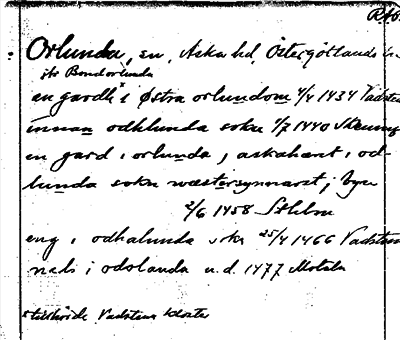 RA6
Orlunda, sn, Aska hd, Östergötlands
jfr Bondorlunda
en gardh i østra orlundom 4/4 1434 Vadsten
innan odhlunda sokn 9/7 1440 Skenning
en gard i orlunda, askahæret, od-
lunda sokn wæstersynnarst; byn
2/6 1458 Sthlm
eng i odhalunda sokn 25/4 1466 Vadsten
nabi i odolanda u.d. 1477 Motala
Vadstena kloster